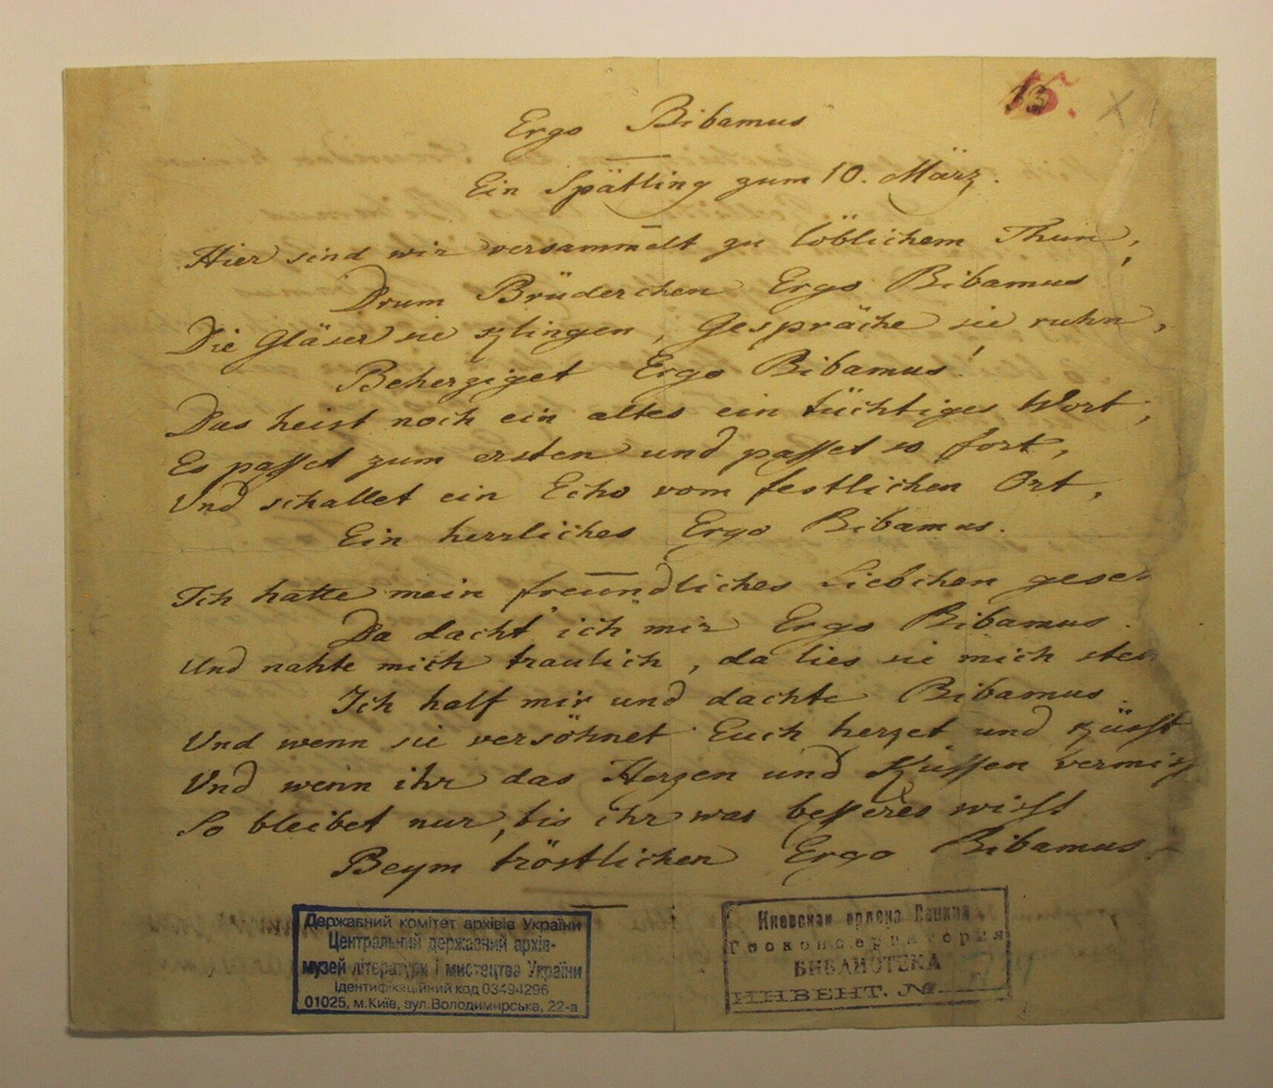 15.
Ergo Bibamus
Ein Spätling zum 10. März.
Hier sind wir versammelt zu löblichem Thun,
Drum Brüderchen Ergo Bibamus
Die Gläser sie klingen, Gespräche sie ruhn,
Beherziget Ergo Bibamus!
Das heist noch ein altes ein tüchtiges Wort,
Es passet zum ersten und passet so fort,
Und schallet ein Echo vom festlichen Ort,
Ein herrliches Ergo Bibamus.
Ich hatte mein freundliches Liebchen gese
Da dacht' ich mir Ergo Bibamus.
Und nahte mich traulich, da lies sie mich steh
Ich half mir und dachte Bibamus.
Und wenn sie versöhnet Euch herzet und küsst
Und wenn ihr das Herzen und Küssen vermisst
So bleibet nur, bis ihr was besseres wisst
Beym tröstlichen Ergo Bibamus.
Державний комітет архівів України
Центральний державний архів-
музей літератури і мистецтва України
Ідентифікаційний код 03494296
01025, м.Київ, вул.Володимирська, 22-а
Киевская ордена Ленина
Госконсерватория
БИБЛИОТЕКА
ИНВЕНТ. №